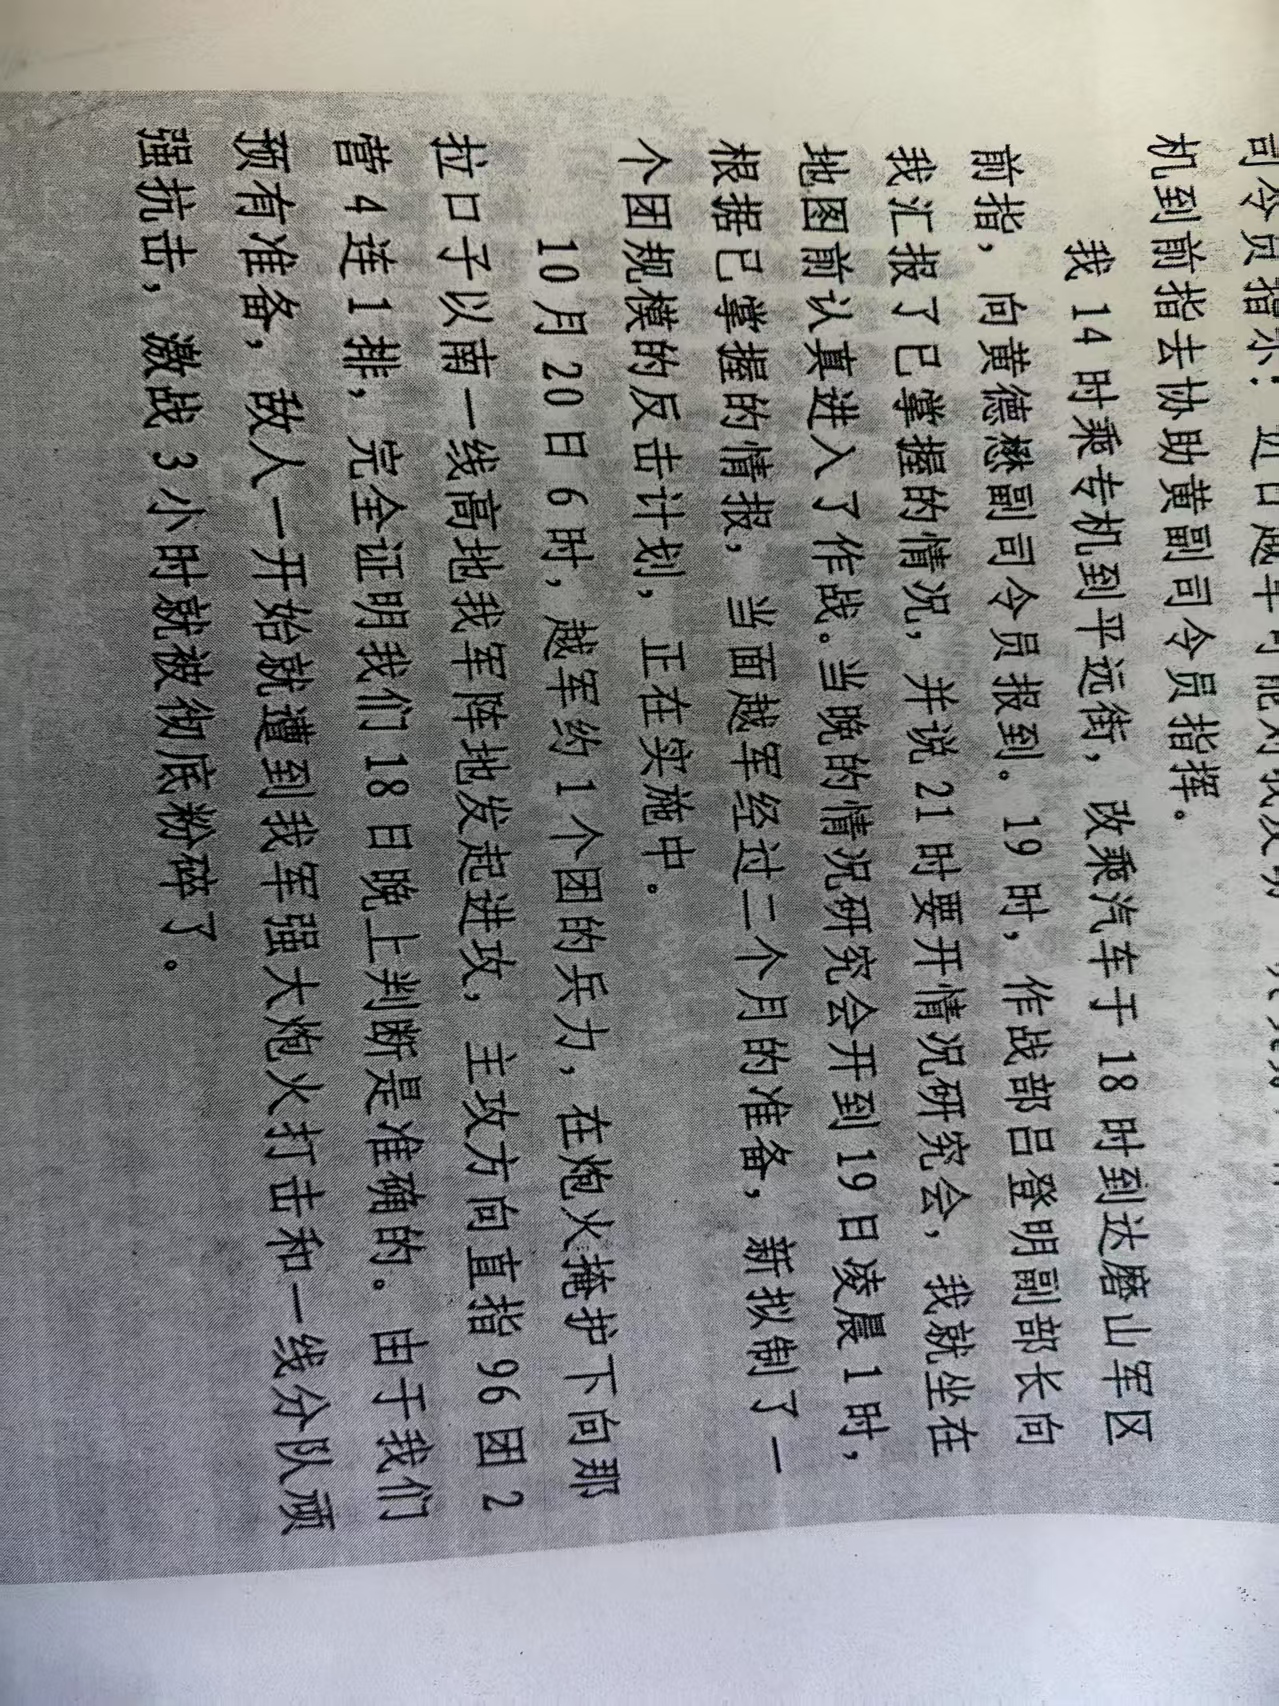 司令员指示：近日越军可能对我发动
机到前指去协助黄副司令员指挥。
我 14 时乘专机到平远街，改乘汽车于 18 时到达磨山军区
前指，向黄德懋副司令员报到。19 时，作战部吕登明副部长向
我汇报了已掌握的情况，并说 21 时要开情况研究会，我就坐在
地图前认真进入了作战。当晚的情况研究会开到 19 日凌晨 1 时，
根据已掌握的情报，当面越军经过二个月的准备，新拟制了一
个团规模的反击计划，正在实施中。
10 月 20 日 6 时，越军约 1 个团的兵力，在炮火掩护下向那
拉口子以南一线高地我军阵地发起进攻，主攻方向直指 96 团 2
营 4 连 1 排，完全证明我们 18 日晚上判断是准确的。由于我们
预有准备，敌人一开始就遭到我军强大炮火打击和一线分队顽
强抗击，激战 3 小时就被彻底粉碎了。